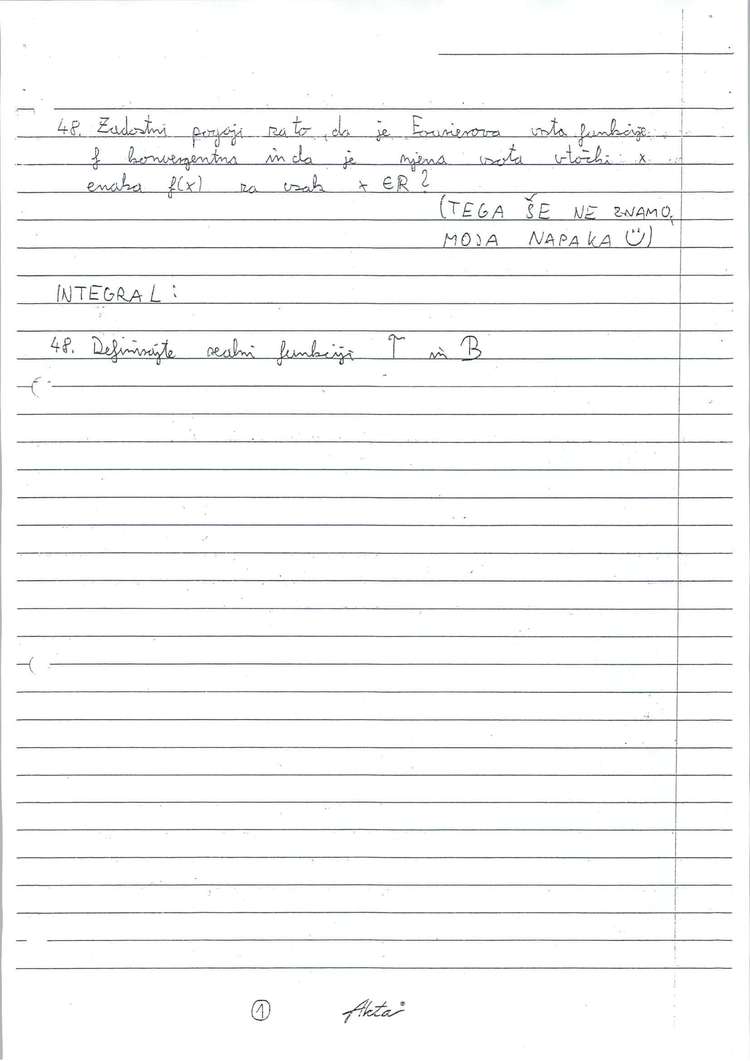 48. Zadostni pogoji za to, da je Fourierova vrsta funkcije
f konvergentna in da je njena vsota v točki x
enaka f(x) za vsak x ∈ R?
(TEGA ŠE NE ZNAMO,
MOJA NAPAKA ☺)
INTEGRAL:
48. Definirajte realni funkciji Γ in B
1 Akta